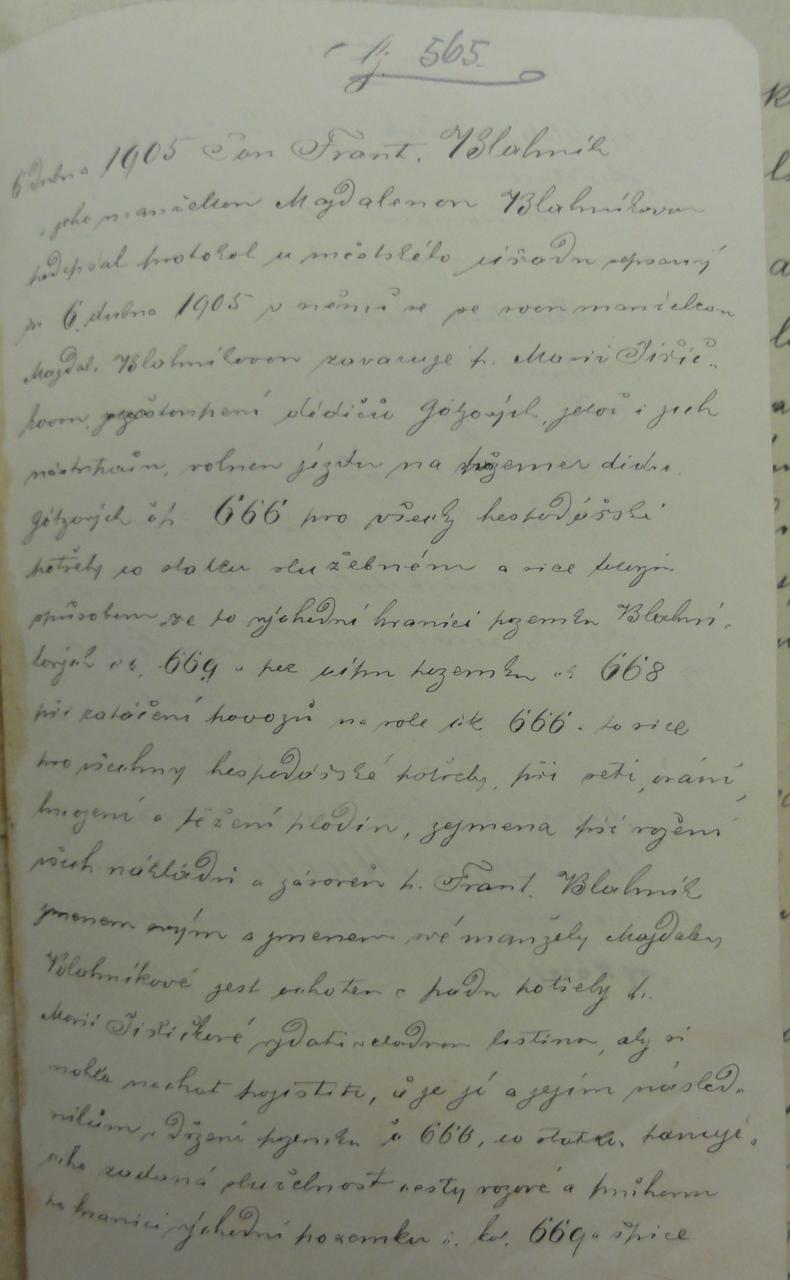 565.
6 dubna 1905 Pan Frant. Blahník
a jeho manželkou Majdalenou Blahníkovou
podepsal protokol u městského úřadu sepsaný
6. dubna 1905 v němž se se svou manželkou
Majdal. Blahníkovou zavazuje p. Marii Jiřič-
kovou, dědiců Götzových, jakož i jich
nástupcům, volnou jízdu na pozemek dědi.
Götzových čp. 666 pro všecky hospodářské
potřeby co statku služebném a sice
způsobem, že po východní hranici pozemku Blahní-
kových 669 a pozemku 668
při zatáčení povozů na role 666. to sice
pro všechny hospodářské potřeby, při setí, orání,
hnojení a těžení plodin, zejmena při vožení
všech nákladů a zároveň p. Frant. Blahník
jmenem svým a jmenem své manžely Majdaleny
Blahníkové jest ochoten v padu potřeby p.
Marii Jiřičkové vydati vkladnou listinu, aby si
mohla nechat pojistiti, že je jí a jejím násled-
níkům v držení pozemku 666, co statku panují-
cího zadaná služebnost cesty vozové a průhonu
po hranici východní pozemku č. kat. 669 a špice